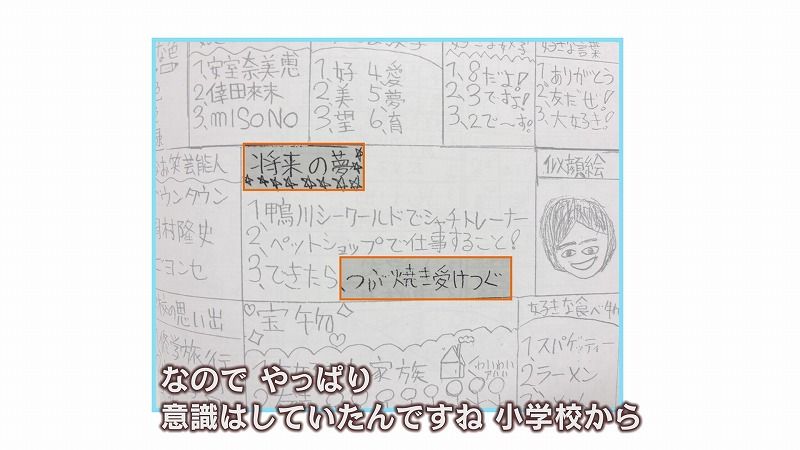 1、安室奈美恵
2、倖田來未
3、mISONO
1、好 4、愛
2、美 5、夢
3、望 6、育
1、8だよ!
2、3ですよ!
3、2で〜す!
好きな言葉
1、ありがとう
2、友だぜ!
3、大好き!!
お笑芸能人
ダウンタウン
岡村隆史
将来の夢
1、鴨川シーワールドでシャチトレーナー
2、ペットショップで仕事すること!
3、できたら、つぶ焼き受けつぐ
似顔絵
の思い出
修学旅行
宝物
家族
わいわい
好きな食べ物
1、スパゲッティー
2、ラーメン
なので やっぱり
意識はしていたんですね 小学校から